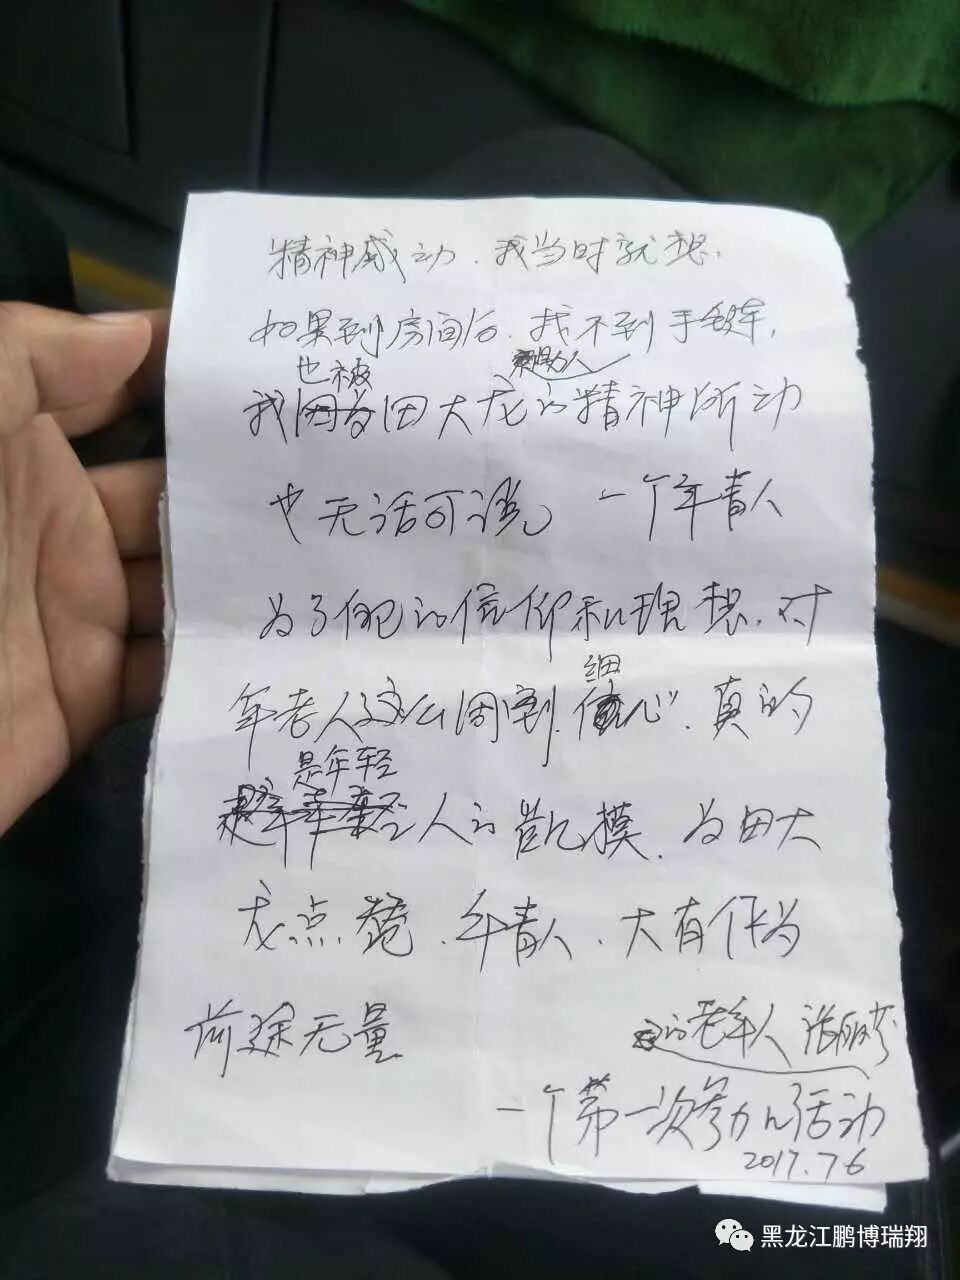 精神感动.我当时就想,
如果到房间后.找不到手包,
也被
我田大龙的精神所动
也无话可说 一个年青人
为了他的信仰和理想.对
年老人这么周到.细心.真的
是年轻
人的凯模.为田大
龙点赞.年青人.大有作为
前途无量
的老年人 张丽芬
一个第一次参加活动
2017.7.6
黑龙江鹏博瑞翔